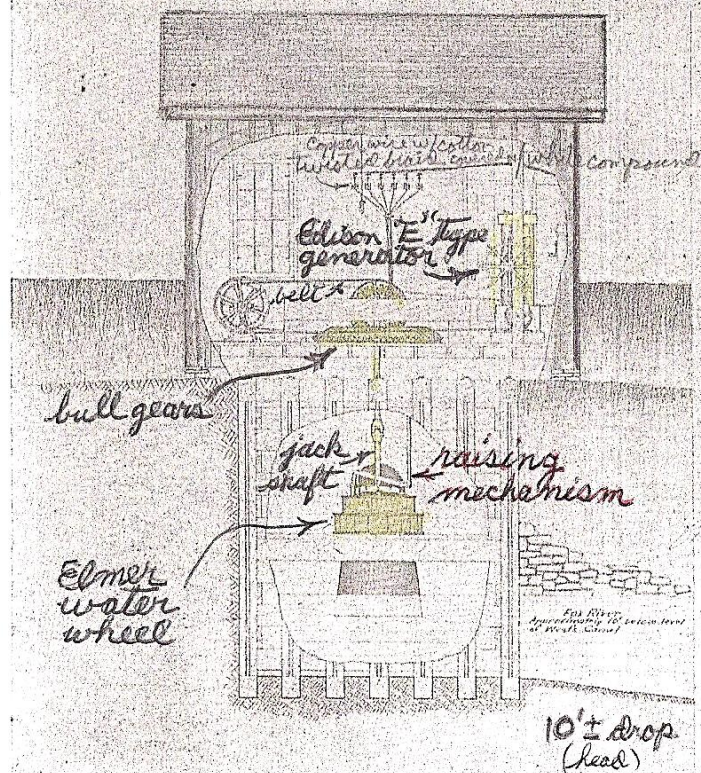 Copper wire w/cotton
twisted braid covered w/white compound
Edison "E" Type
generator
belt
bull gears
jack
shaft
raising
mechanism
Elmer
water
wheel
Fox River
Approximately 10' below level
of West Canal
10' ± drop
(head)